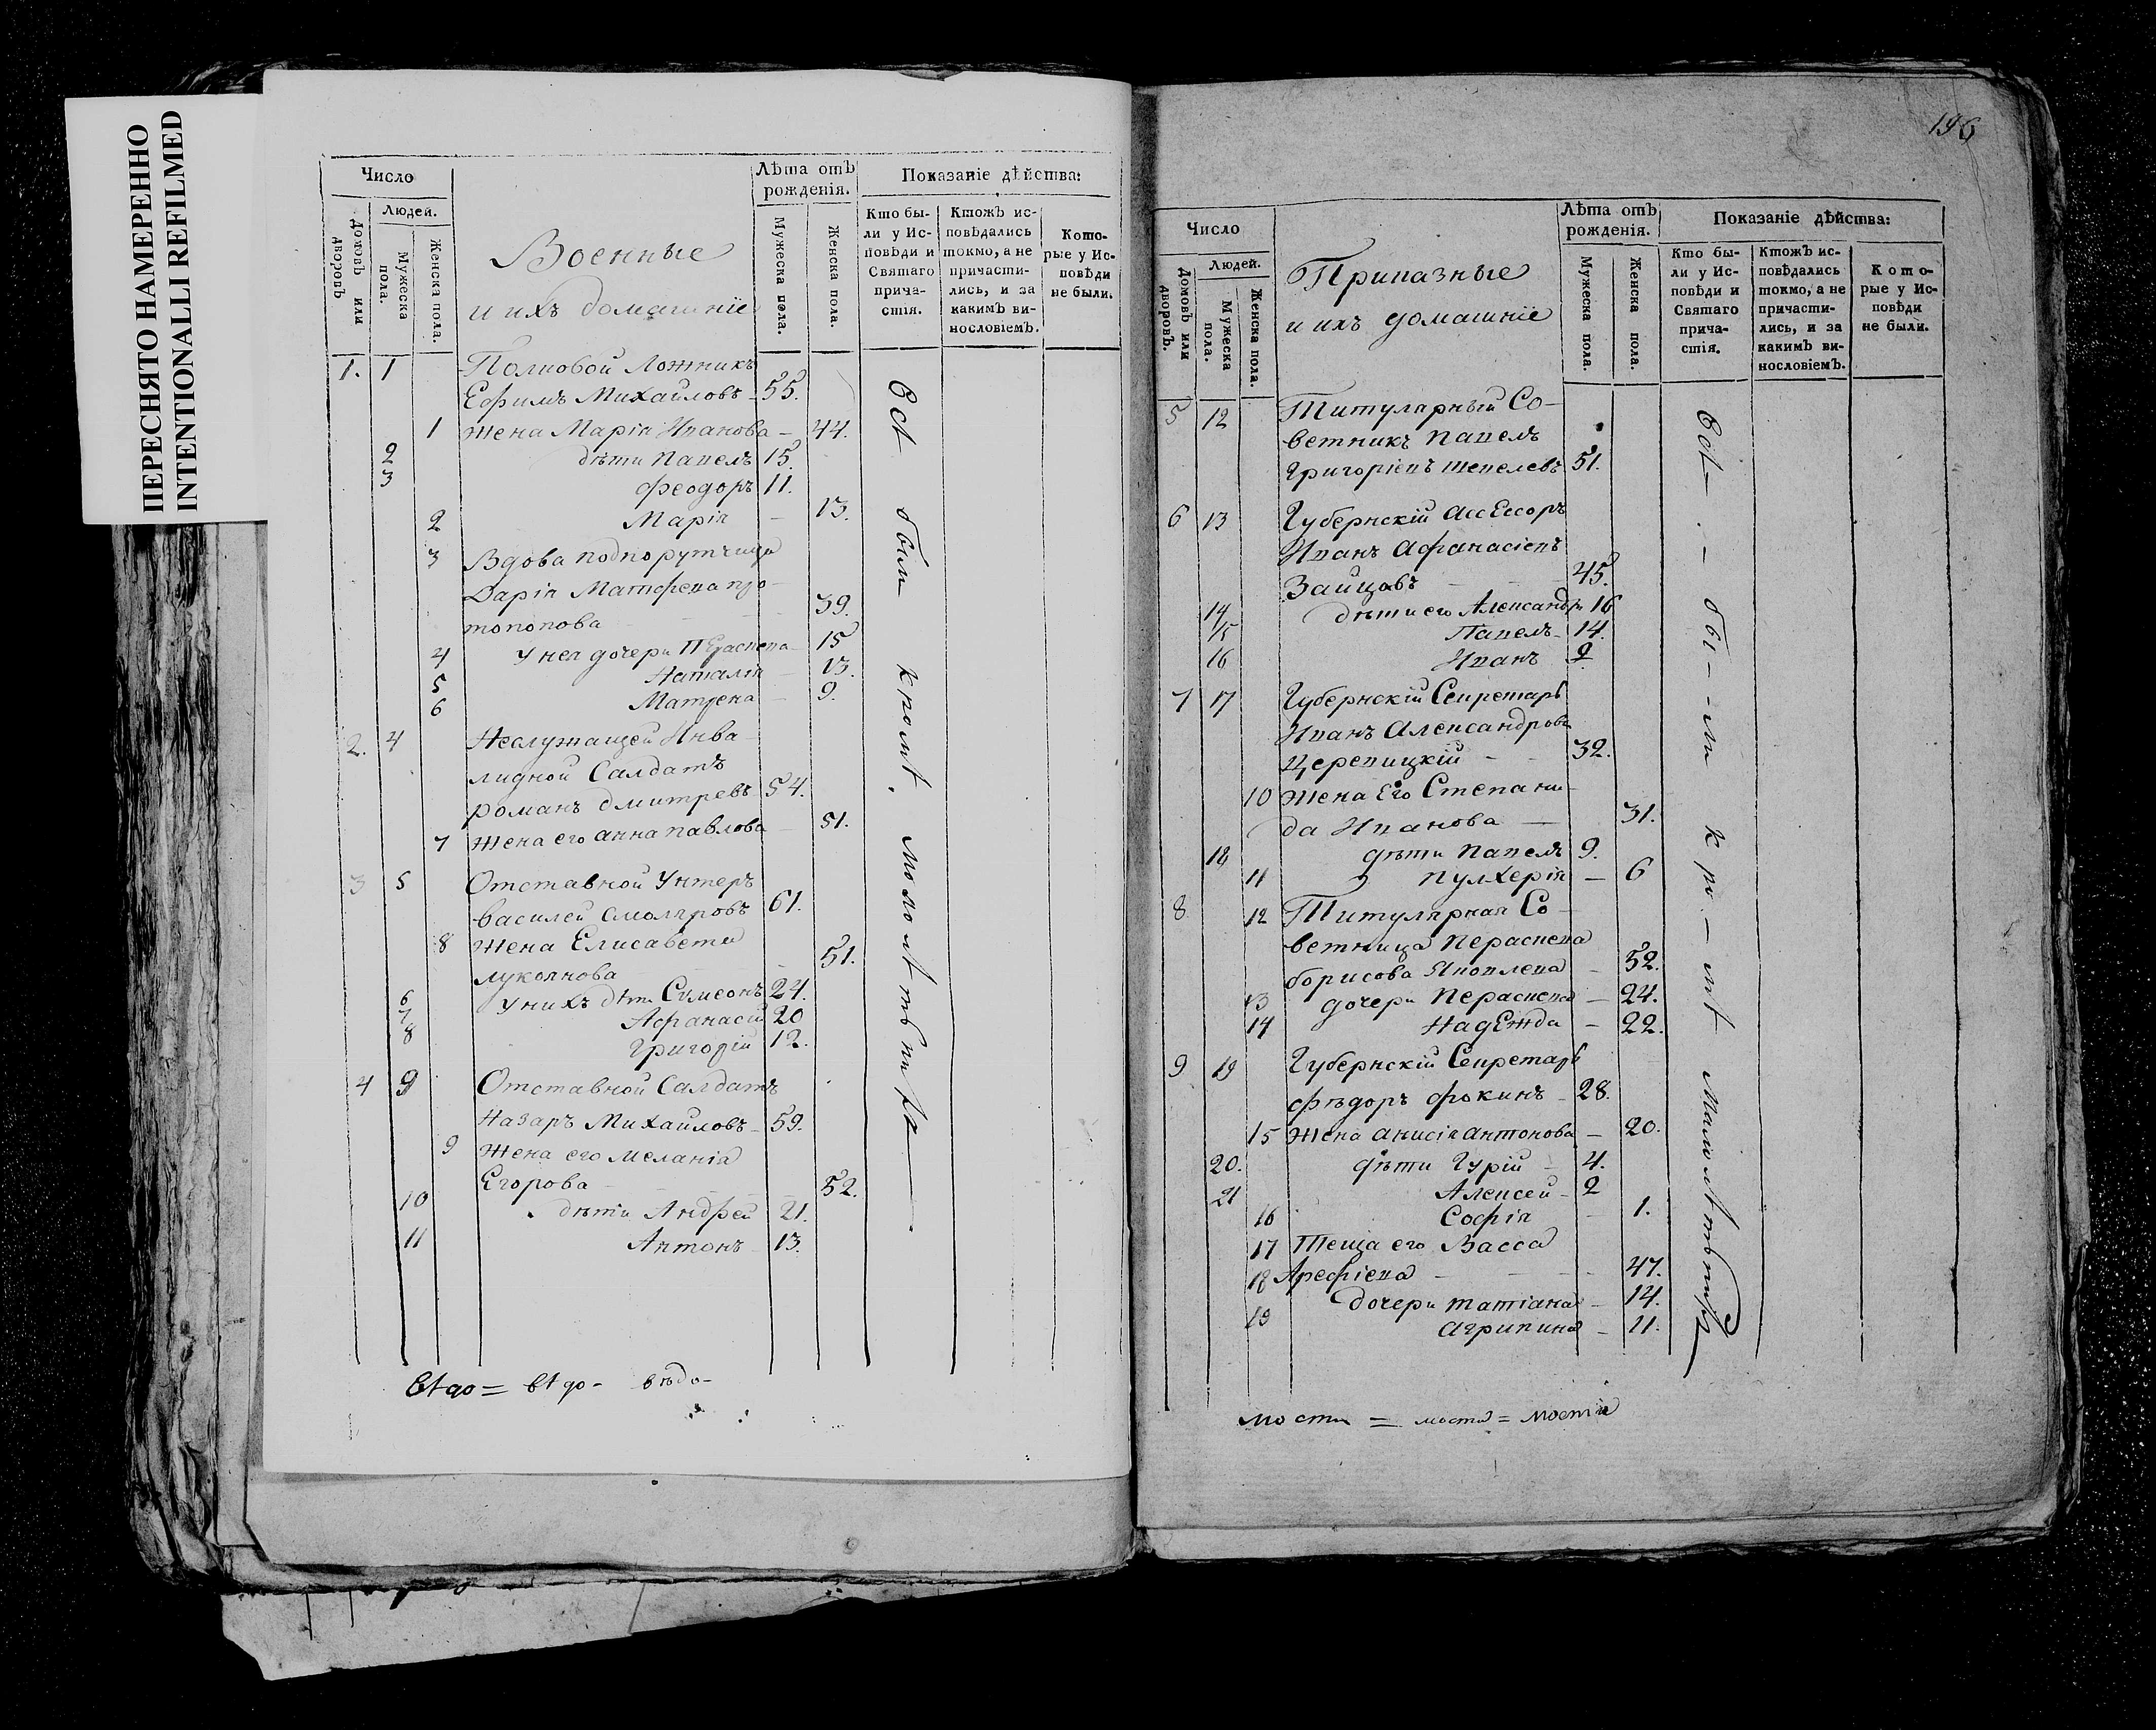 ПЕРЕСНЯТО НАМЕРЕННО
INTENTIONALLI REFILMED
Число
Людей.
Домовъ или дворовъ
Мужеска пола.
Женска пола.
Военные
и ихъ домашніе
Лѣта отъ рожденія.
Мужеска пола.
Женска пола.
Показаніе дѣйства:
Кто бы-
ли у Ис-
повѣди и
Святаго
прича-
стія.
Ктожъ ис-
повѣдались
токмо, а не
причасти-
лись, и за
какимъ ви-
нословіемъ.
Кото-
рые у Ис-
повѣди
не были.
1. 1 Полковой Ложникъ
Ефимъ Михайловъ - 55.
1 Жена Марія Иванова - 44.
2 дѣти Павелъ 15.
3 Феодоръ 11.
2 Марія - 13.
3 Вдова подпорутчица
Дарія Матфева про-
топопова 39.
4 У нея дочери Параскева 15
5 Наталія - 13.
6 Матрена - 9.
2. 4 Неслужащей Инва-
лидной Салдатъ
Романъ Дмитревъ 54.
7 Жена его Анна Павлова 51.
3 5 Отставной Унтеръ
Василей Смоляровъ 61.
8 Жена Елисавета
Лукоянова 51.
6 У нихъ дѣти Симеонъ 24.
7 Афанасій 20
8 Григорій 12.
4 9 Отставной Салдатъ
Назаръ Михайловъ - 59.
9 Жена его Меланія
Егорова 52.
10 дѣти Андрей 21.
11 Антонъ 13.
Всѣ были кромѣ малолѣтъныхъ
вѣдо = вѣдо - вѣдо-
196
Число
Людей.
Домовъ или дворовъ.
Мужеска пола.
Женска пола.
Приказные
и ихъ домашніе
Лѣта отъ рожденія.
Мужеска пола.
Женска пола.
Показаніе дѣйства:
Кто бы-
ли у Ис-
повѣди и
Святаго
прича-
стія.
Ктожъ ис-
повѣдались
токмо, а не
причасти-
лись, и за
какимъ ви-
нословіемъ.
Кото-
рые у Ис-
повѣди
не были.
5 12 Титулярный Со-
ветникъ Павелъ
Григоріевъ Шепелевъ 51.
6 13 Губернскій Ассессоръ
Иванъ Афанасіевъ
Зайцовъ 45.
14 дѣти его Александръ 16
15 Павелъ - 14.
16 Иванъ 9
7 17 Губернскій Секретарь
Иванъ Александровъ
Черевицкій - 32.
10 Жена Его Степани-
да Иванова - 31.
18 дѣти Павелъ 9.
11 Пулхерія - 6
8 12 Титулярная Со-
ветница Параскева
Борисова Яковлева - 52.
13 дочери Параскева - 24.
14 Надежда - 22.
9 19 Губернскій Секретарь
Фѣдоръ Фокинъ - 28.
15 Жена Анисія Антонова - 20.
20. дѣти Гурій - 4.
21 Алексей - 2
16 Софія - 1.
17 Теща его Васса
18 Арефіева - 47.
дочери Татіана - 14.
19 Агрипина - 11.
Всѣ - - бы - - ли кро - мѣ малолѣтъныхъ
мости = мости = мости